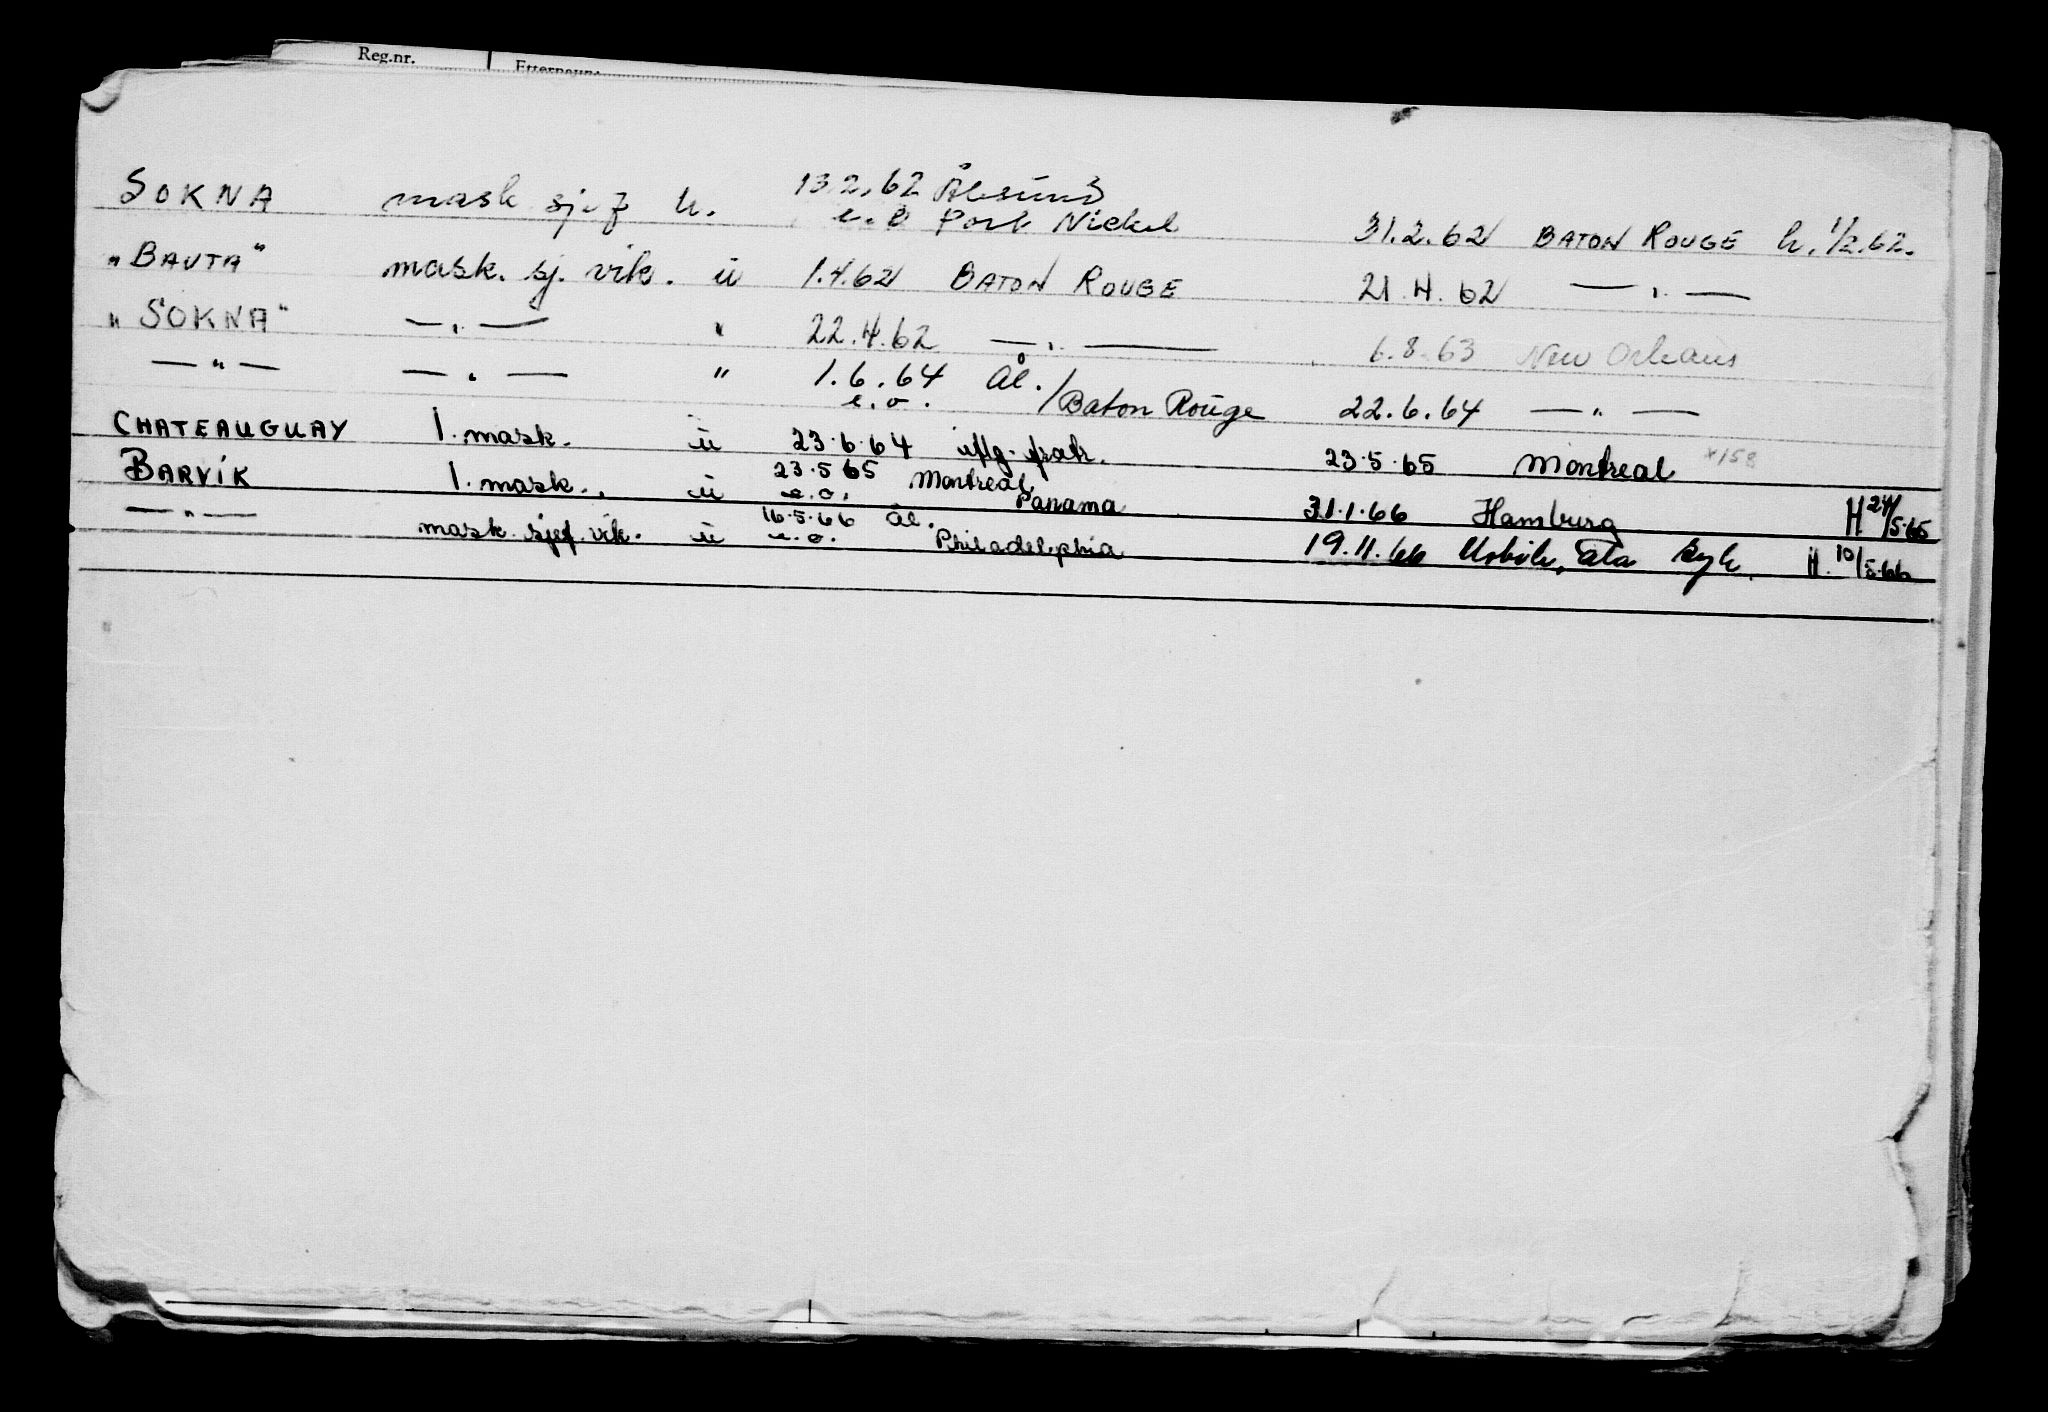 Reg.nr. Etternavn:
SOKNA mask sjef u. 13.2.62 Ålesund
e.o Port Nickel 31.2.62 BATON ROUGE h. 1/2.62.
"BAUTA" mask. sj. vik. u 1.4.62 BATON ROUGE 21.4.62 — " —
"SOKNA" — " — " 22.4.62 — " — 6.8.63 New Orleans
— " — — " — " 1.6.64 Ål.
e.o. /Baton Rouge 22.6.64 — " —
CHATEAUGUAY 1. mask. u 23.6.64 uflg. frak. 23.5.65 Montreal x158
BARVIK 1. mask. u 23.5.65 Montreal
e.o. Panama 31.1.66 Hamburg H 24/5.65
— " — mask. sjef. vik. u 16.5.66 Ål.
e.o. Philadelphia 19.11.66 Mobile, Ala syk. H. 10/5.66